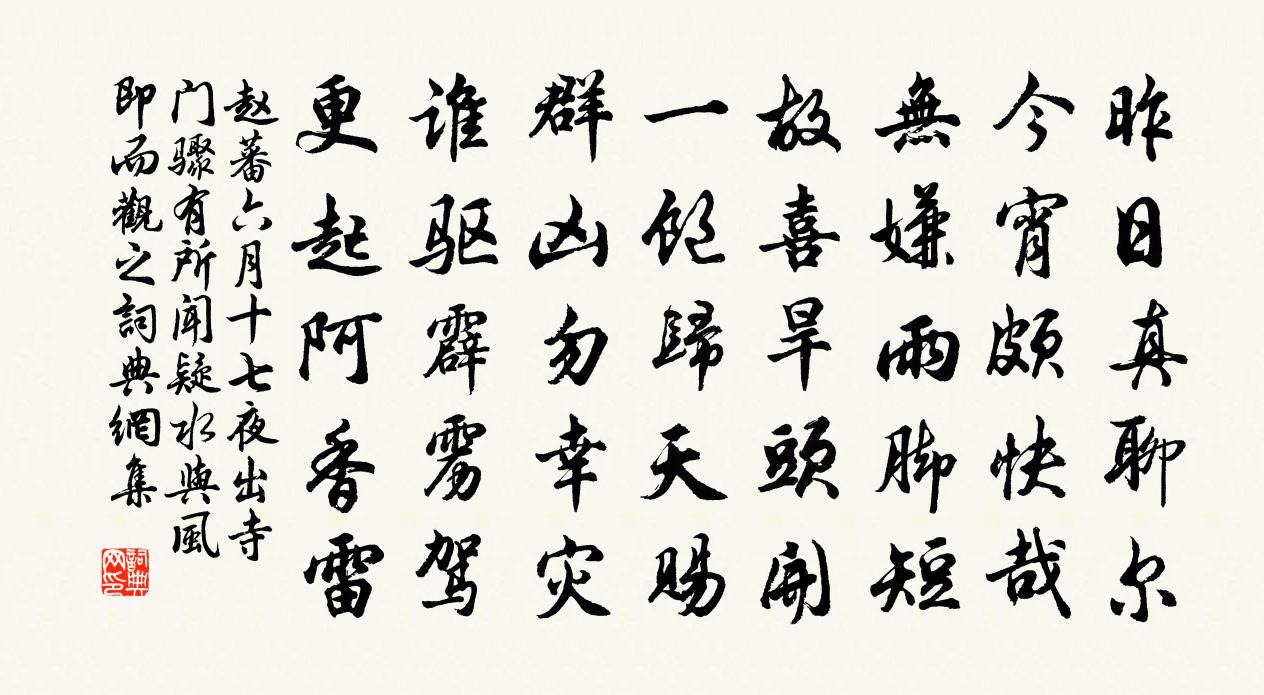 昨日真聊尔
今宵頗快哉
無嫌雨脚短
故喜旱頭開
一飽歸天賜
群凶勿幸灾
谁驱霹雳驾
更起阿香雷
赵蕃六月十七夜出寺
门骤有所闻疑水與風
即而觀之詞典網集
詞典网印